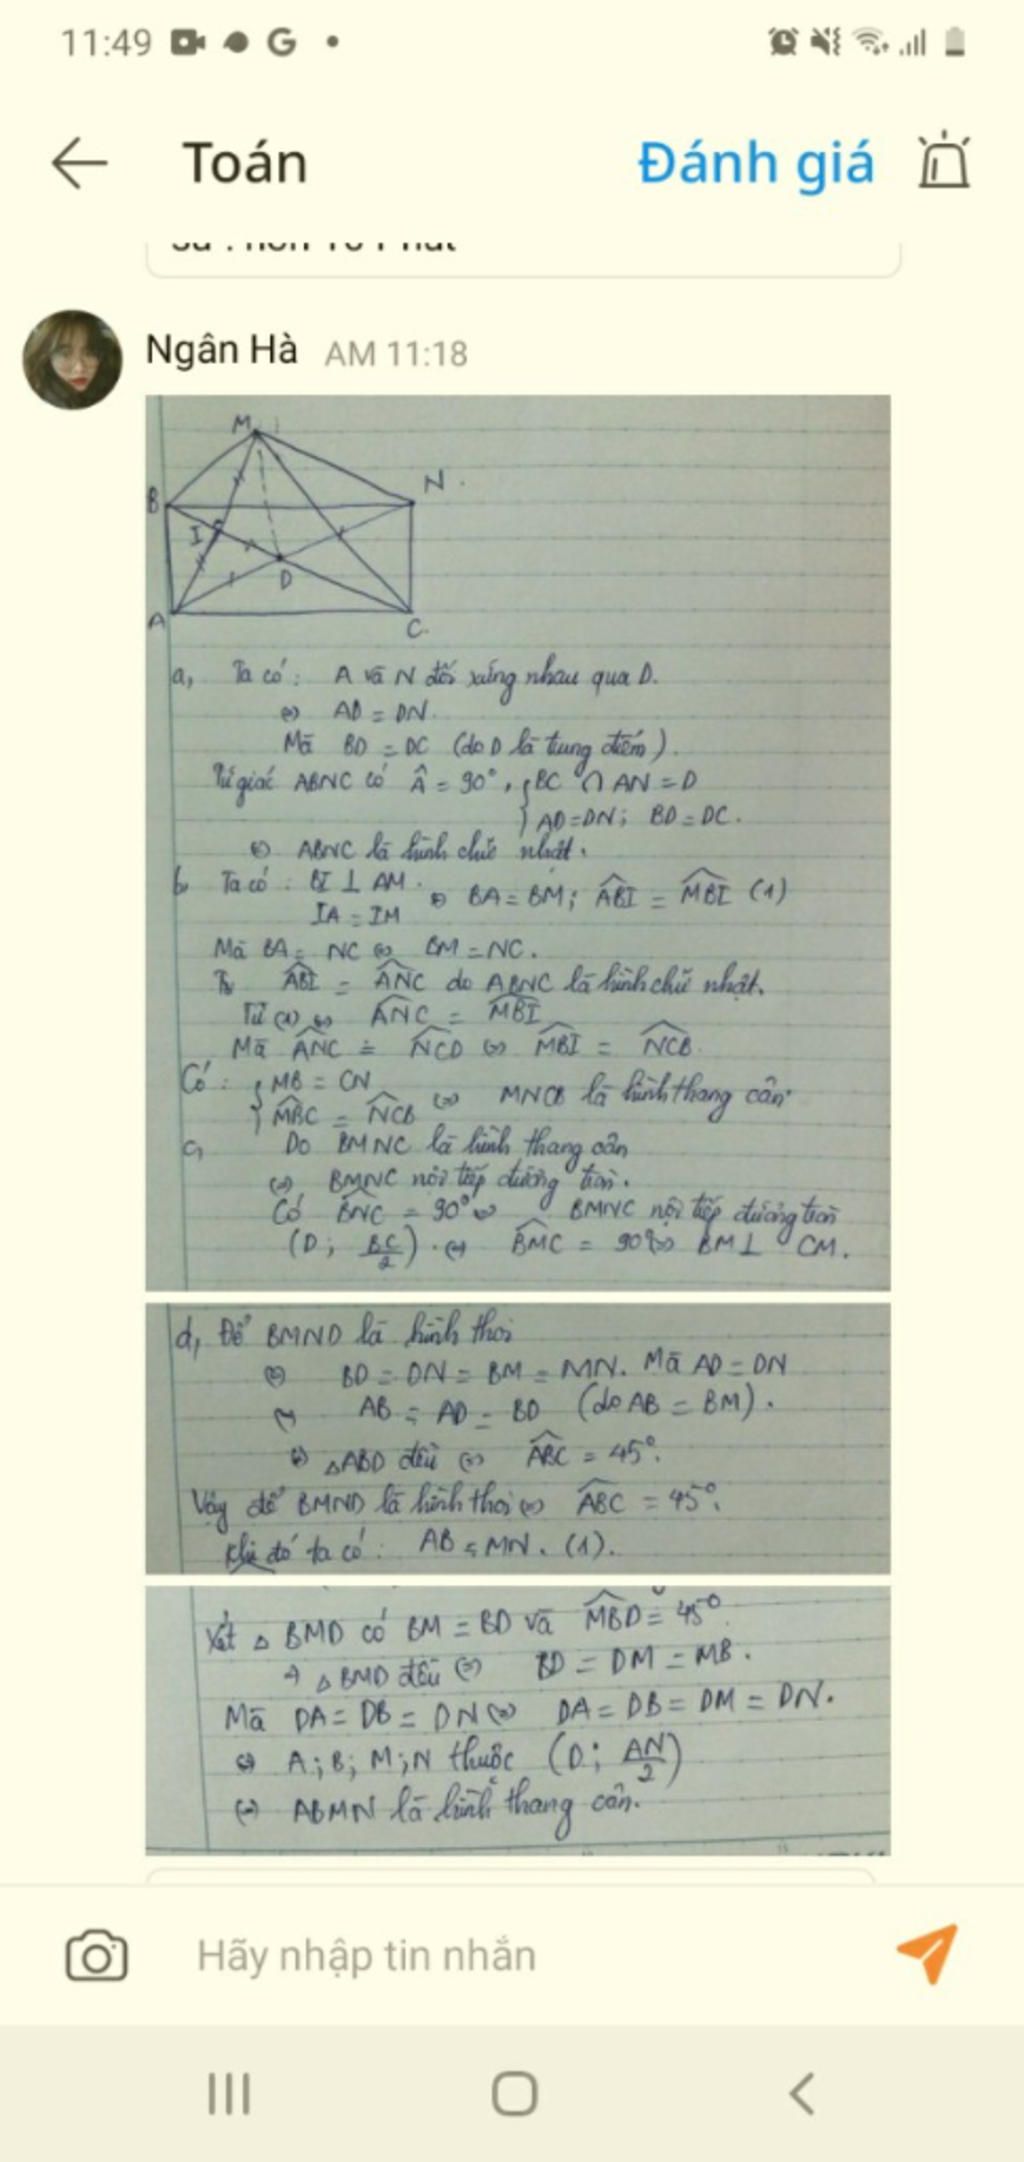 11:49
Toán
Đánh giá
Ngân Hà AM 11:18
M
B
N
I
D
A
C
a, Ta có: A và N đối xứng nhau qua D.
⇔ AD = DN.
Mà BD = DC (do D là trung điểm).
Tứ giác ABNC có Â = 90°, { BC ∩ AN = D
AD = DN; BD = DC.
⇔ ABNC là hình chữ nhật.
b, Ta có: BI ⊥ AM.
IA = IM
⇔ BA = BM; ABI = MBI (1)
Mà BA = NC ⇔ BM = NC.
ABI = ANC do ABNC là hình chữ nhật.
Từ (1) ⇔ ANC = MBI
Mà ANC = NCD ⇔ MBI = NCB.
Có: { MB = CN
MBC = NCB ⇔ MNCB là hình thang cân.
c, Do BMNC là hình thang cân
⇔ BMNC nội tiếp đường tròn.
Có BNC = 90° ⇔ BMNC nội tiếp đường tròn
(D; BC/2). ⇔ BMC = 90° ⇔ BM ⊥ CM.
d, Để BMND là hình thoi
⇔ BD = DN = BM = MN. Mà AD = DN
⇔ AB = AD = BD (do AB = BM).
⇔ △ABD đều ⇔ ABC = 45°.
Vậy để BMND là hình thoi ⇔ ABC = 45°.
Khi đó ta có: AB = MN. (1).
Xét △ BMD có BM = BD và MBD = 45°
→ △ BMD đều ⇔ BD = DM = MB.
Mà DA = DB = DN ⇔ DA = DB = DM = DN.
⇔ A; B; M; N thuộc (D; AN/2)
⇔ ABMN là hình thang cân.
Hãy nhập tin nhắn